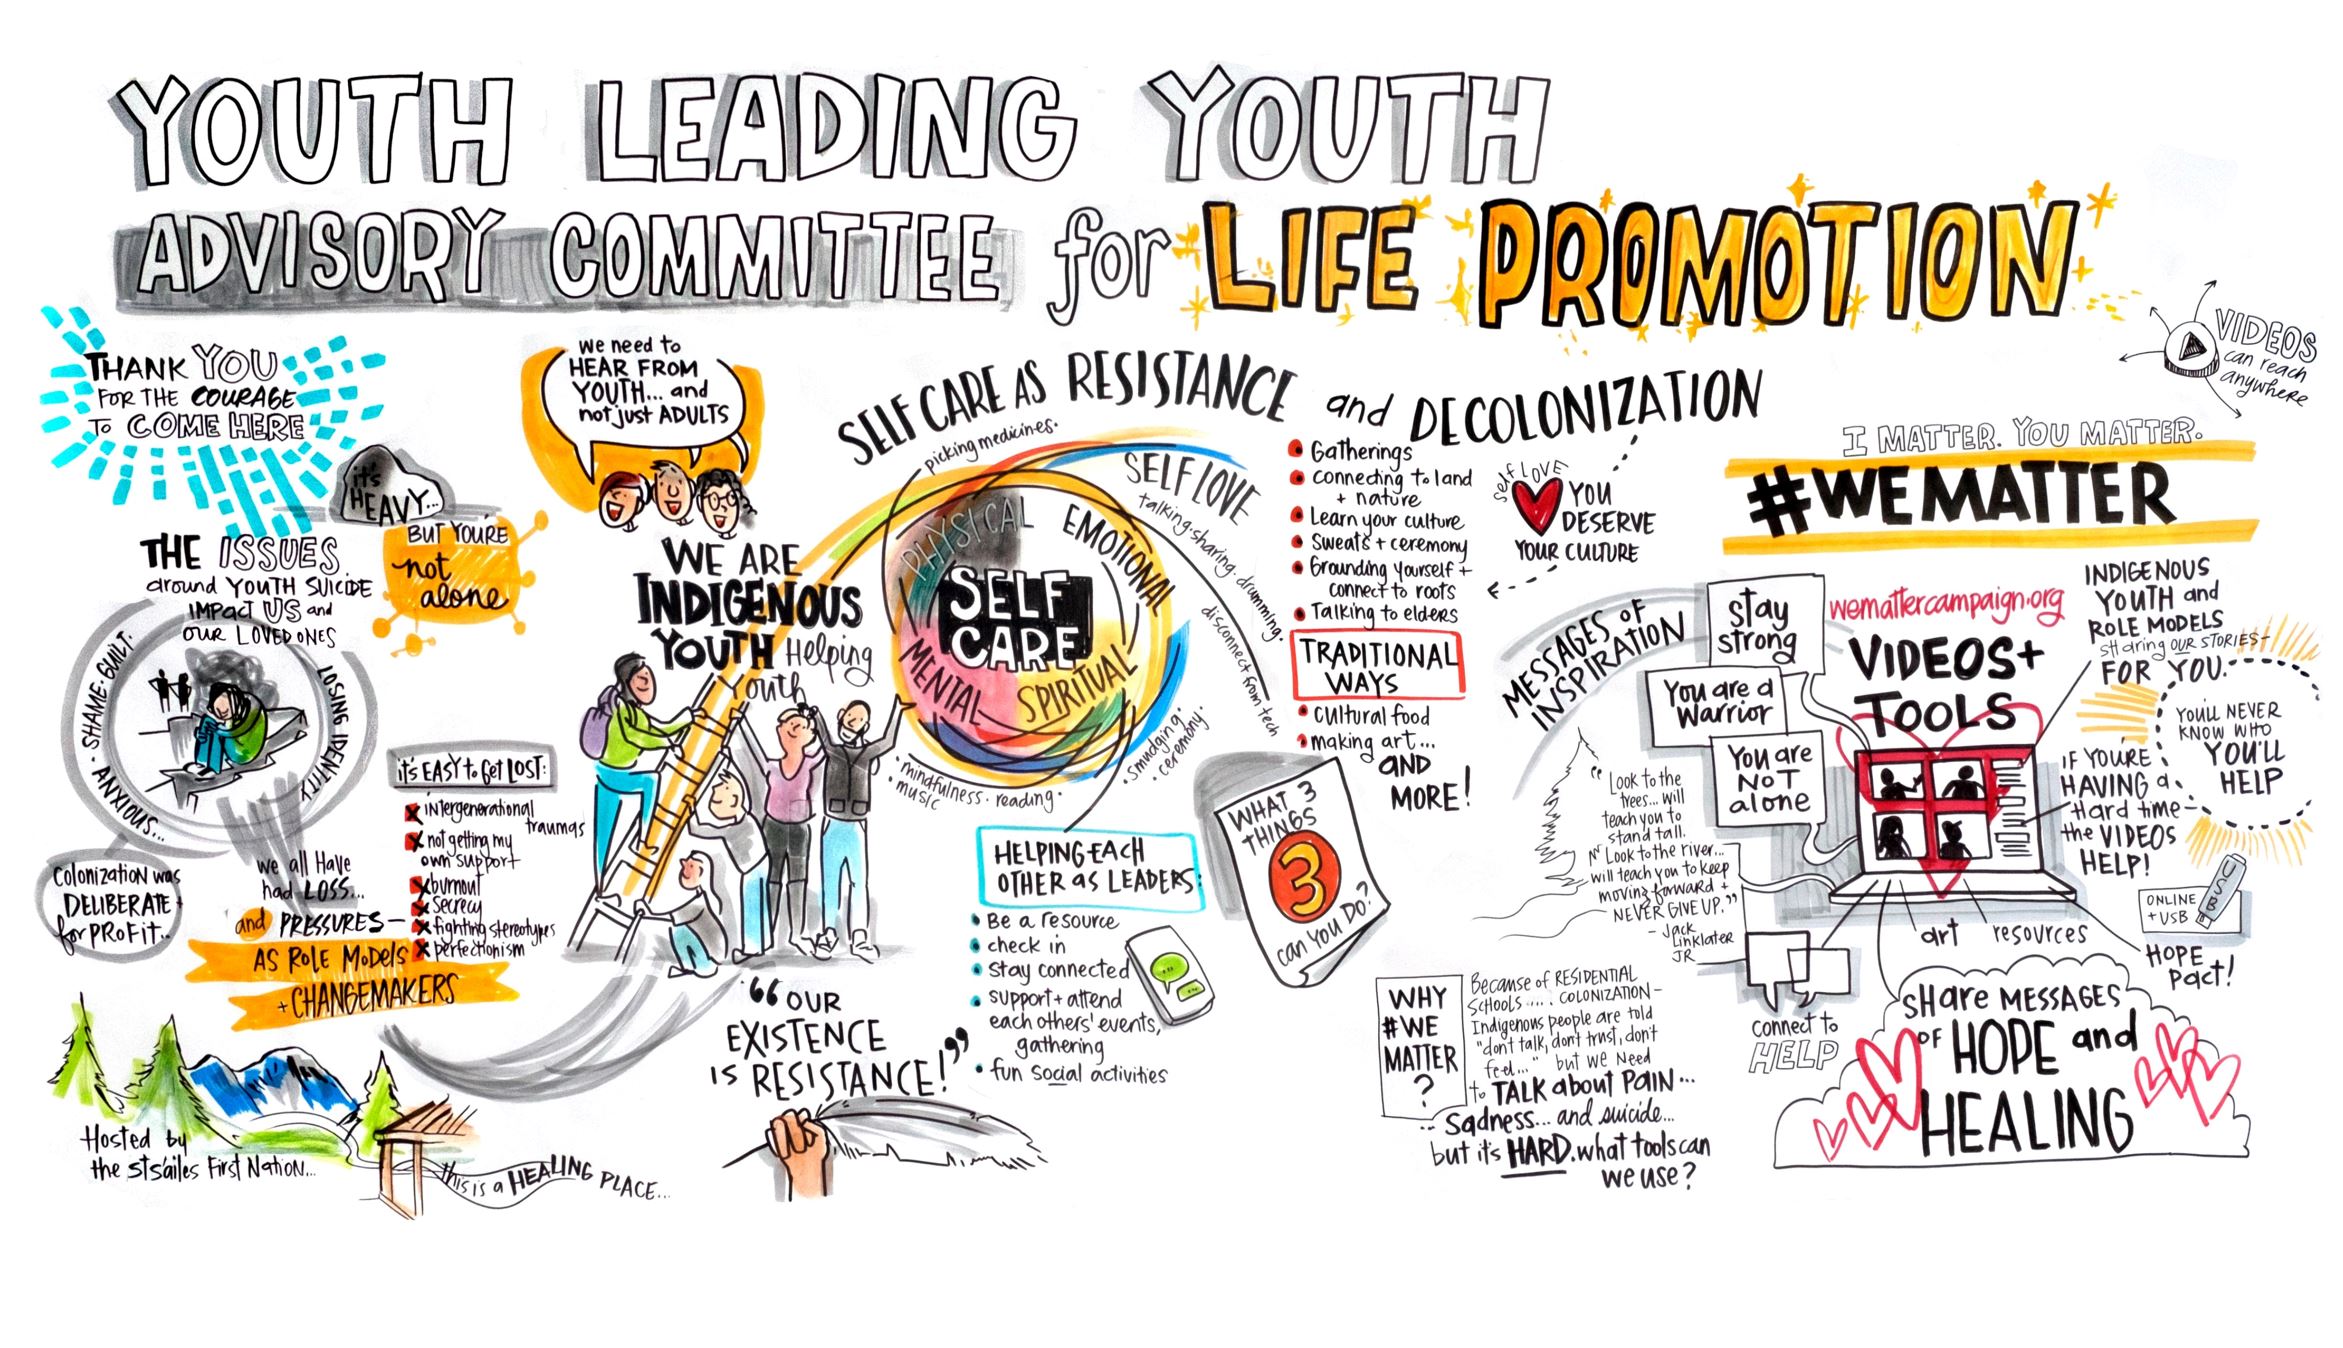 YOUTH LEADING YOUTH
ADVISORY COMMITTEE for LIFE PROMOTION
THANK YOU
FOR THE COURAGE
TO COME HERE
it's
HEAVY...
BUT YOU'RE
not
alone
THE ISSUES
around YOUTH SUICIDE
IMPACT US and
OUR LOVED ONES
ANXIOUS... • SHAME • GUILT •
LOSING IDENTITY
Colonization was
DELIBERATE +
for PROFIT..
we all Have
had LOSS...
and PRESSURES—
AS ROLE MODELS
+ CHANGEMAKERS
it's EASY to Get LOST:
intergenerational
traumas
not getting my
own support
burnout
secrecy
fighting stereotypes
perfectionism
Hosted by
the sts'ailes First Nation...
this is a HEALING PLACE...
we need to
HEAR FROM
YOUTH... and
not just ADULTS
WE ARE
INDIGENOUS
YOUTH Helping
Youth
"OUR
EXISTENCE
IS RESISTANCE!"
SELF CARE AS RESISTANCE and DECOLONIZATION
picking medicines •
PHYSICAL
EMOTIONAL
SELF
CARE
MENTAL
SPIRITUAL
SELF LOVE
talking • sharing • drumming •
disconnect from tech
• smudging •
• ceremony •
• mindfulness • reading •
• music
HELPING EACH
OTHER as LEADERS:
• Be a resource
• check in
• stay connected
• support + attend
each others' events,
gathering
• fun social activities
• Gatherings
• connecting to land
+ nature
• Learn your culture
• Sweats + ceremony
• Grounding yourself +
connect to roots
• Talking to elders
TRADITIONAL
WAYS
• cultural food
• making art...
AND
MORE!
self LOVE
YOU
DESERVE
YOUR CULTURE
WHAT 3
THINGS
3
can YOU DO?
WHY
#WE
MATTER
?
Because of RESIDENTIAL
SCHOOLS .... COLONIZATION—
Indigenous people are told
"don't talk, don't trust, don't
feel..." but we Need
to TALK about PAIN...
.. Sadness... and suicide...
but it's HARD. what tools can
we use?
VIDEOS
can reach
anywhere
I MATTER. YOU MATTER.
#WEMATTER
MESSAGES OF
INSPIRATION
stay
strong
You are a
Warrior
You are
NOT
alone
"Look to the
trees... will
teach you to
stand tall.
Look to the river...
will teach you to keep
moving forward +
NEVER GIVE UP."
- Jack
Linklater
JR
wemattercampaign.org
VIDEOS +
TOOLS
INDIGENOUS
YOUTH and
ROLE MODELS
sharing OUR STORIES—
FOR YOU.
YOU'LL NEVER
KNOW WHO
YOU'LL
HELP
IF YOU'RE
HAVING a
Hard time—
the VIDEOS
HELP!
ONLINE
+ USB
USB
art
resources
HOPE
Pact!
connect to
HELP
SHare MESSAGES
OF HOPE and
HEALING